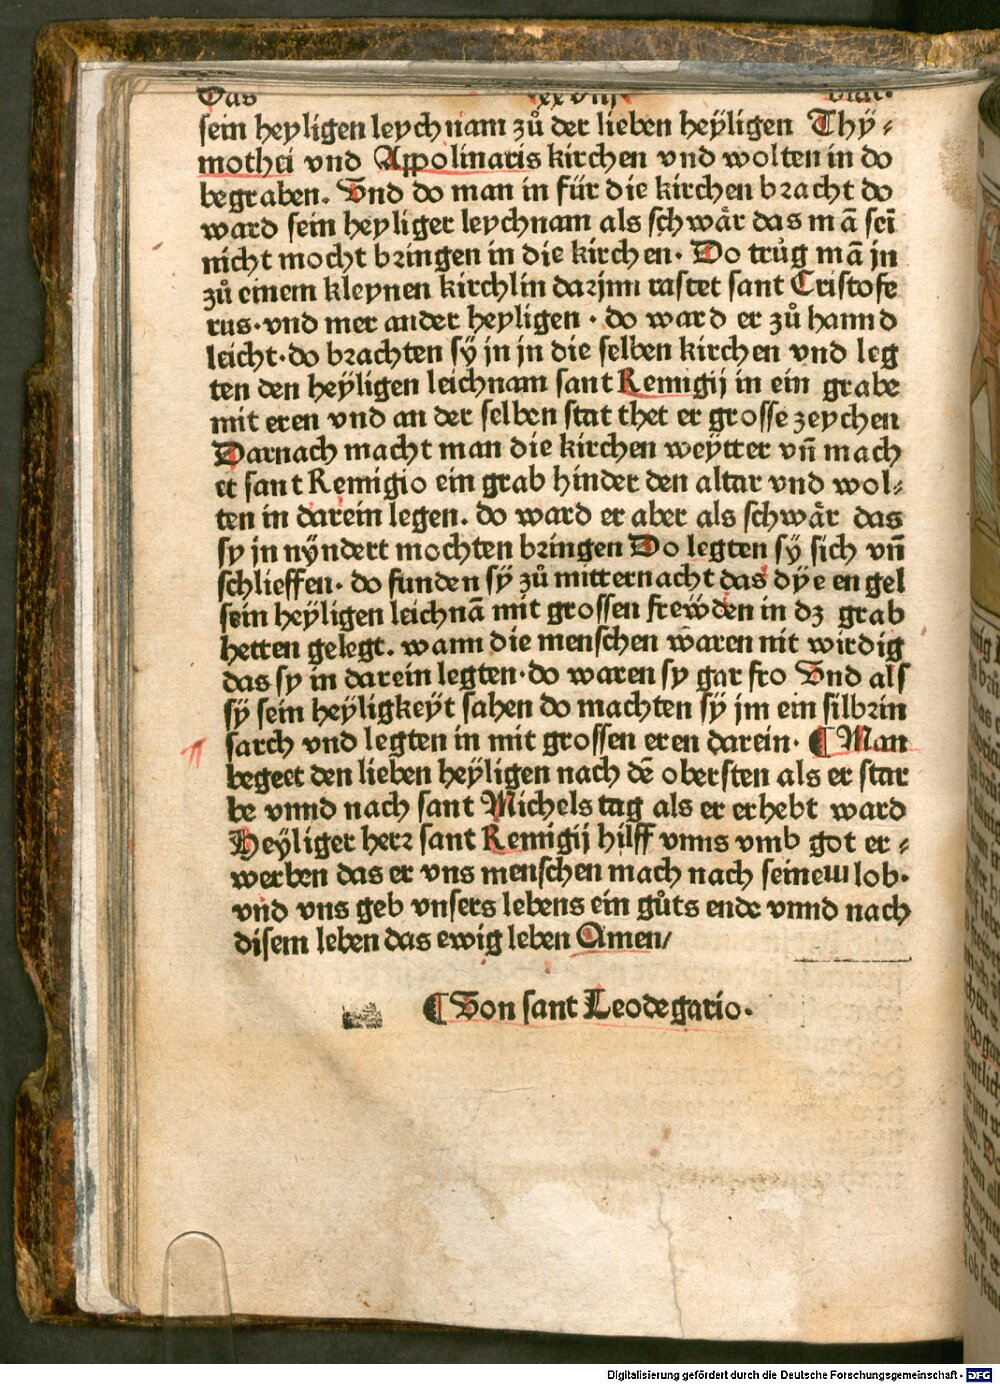 Das xxviij. blat.
sein heyligen leychnam zů der lieben heÿligen Thÿ⸗
mothei vnd Appolinaris kirchen vnd wolten in do
begraben. Vnd do man in für die kirchen bracht do
ward sein heyliger leychnam als schwår das mā sei
nicht mocht bringen in die kirchen. Do trůg mā jn
zů einem kleynen kirchlin darjnn rastet sant Cristofe
rus. vnd mer ander heyligen . do ward er zů hannd
leicht. do brachten sÿ jn in die selben kirchen vnd leg
ten den heÿligen leichnam sant Remigij in ein grabe
mit eren vnd an der selben stat thet er grosse zeychen
Darnach macht man die kirchen weÿtter vñ mach
et sant Remigio ein grab hinder den altar vnd wol⸗
ten in darein legen. do ward er aber als schwår das
sy jn nÿndert mochten bringen Do legten sÿ sich vñ
schlieffen. do funden sÿ zů mitternacht das dÿe engel
sein heÿligen leichnā mit grossen frewden in dz grab
hetten gelegt. wann die menschen waren nit wirdig
das sy in darein legten. do waren sy gar fro Vnd als
sÿ sein heÿligkeÿt sahen do machten sÿ jm ein silbrin
sarch vnd legten in mit grossen eren darein. ¶ Man
begeet den lieben heÿligen nach dē obersten als er star
be vnnd nach sant Michels tag als er erhebt ward
Heÿliger herr sant Remigij hilff vnns vmb got er⸗
werben das er vns menschen mach nach seinem lob.
vnd vns geb vnsers lebens ein gůts ende vnnd nach
disem leben das ewig leben Amen/
¶ Von sant Leodegario.
Digitalisierung gefördert durch die Deutsche Forschungsgemeinschaft - DFG